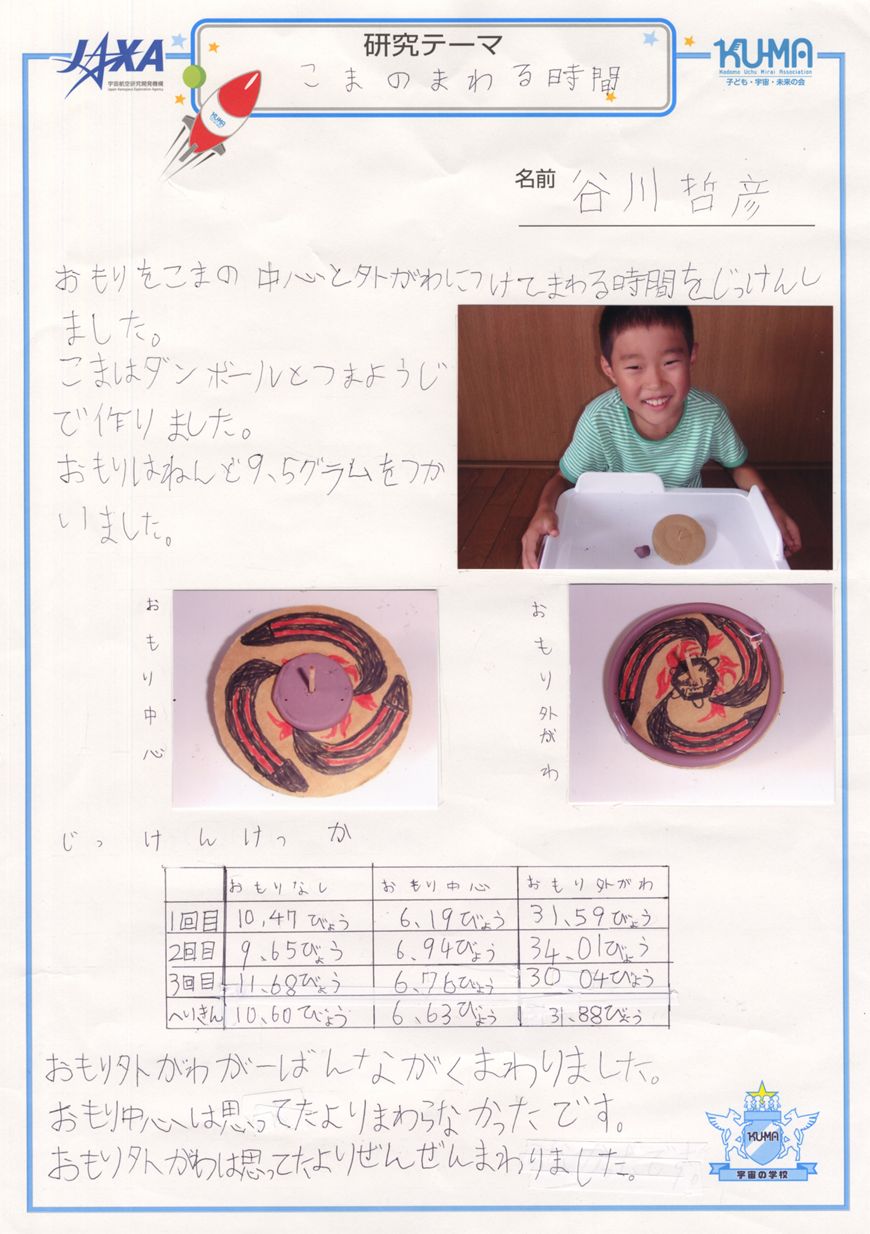 JAXA
宇宙航空研究開発機構
Japan Aerospace Exploration Agency
研究テーマ
こまのまわる時間
KU-MA
Kodomo Uchu Mirai Association
子ども・宇宙・未来の会
KU-MA
名前 谷川哲彦
おもりをこまの中心と外がわにつけてまわる時間をじっけんし
ました。
こまはダンボールとつまようじ
で作りました。
おもりはねんど9、5グラムをつか
いました。
おもり中心
おもり外がわ
じっけんけっか
おもりなし おもり中心 おもり外がわ
1回目 10、47びょう 6、19びょう 31、59びょう
2回目 9、65びょう 6、94びょう 34、01びょう
3回目 11、68びょう 6、76びょう 30、04びょう
へいきん 10、60びょう 6、63びょう 31、88びょう
おもり外がわが一ばんながくまわりました。
おもり中心は思ってたよりまわらなかったです。
おもり外がわは思ってたよりぜんぜんまわりました。
KU-MA
宇宙の学校